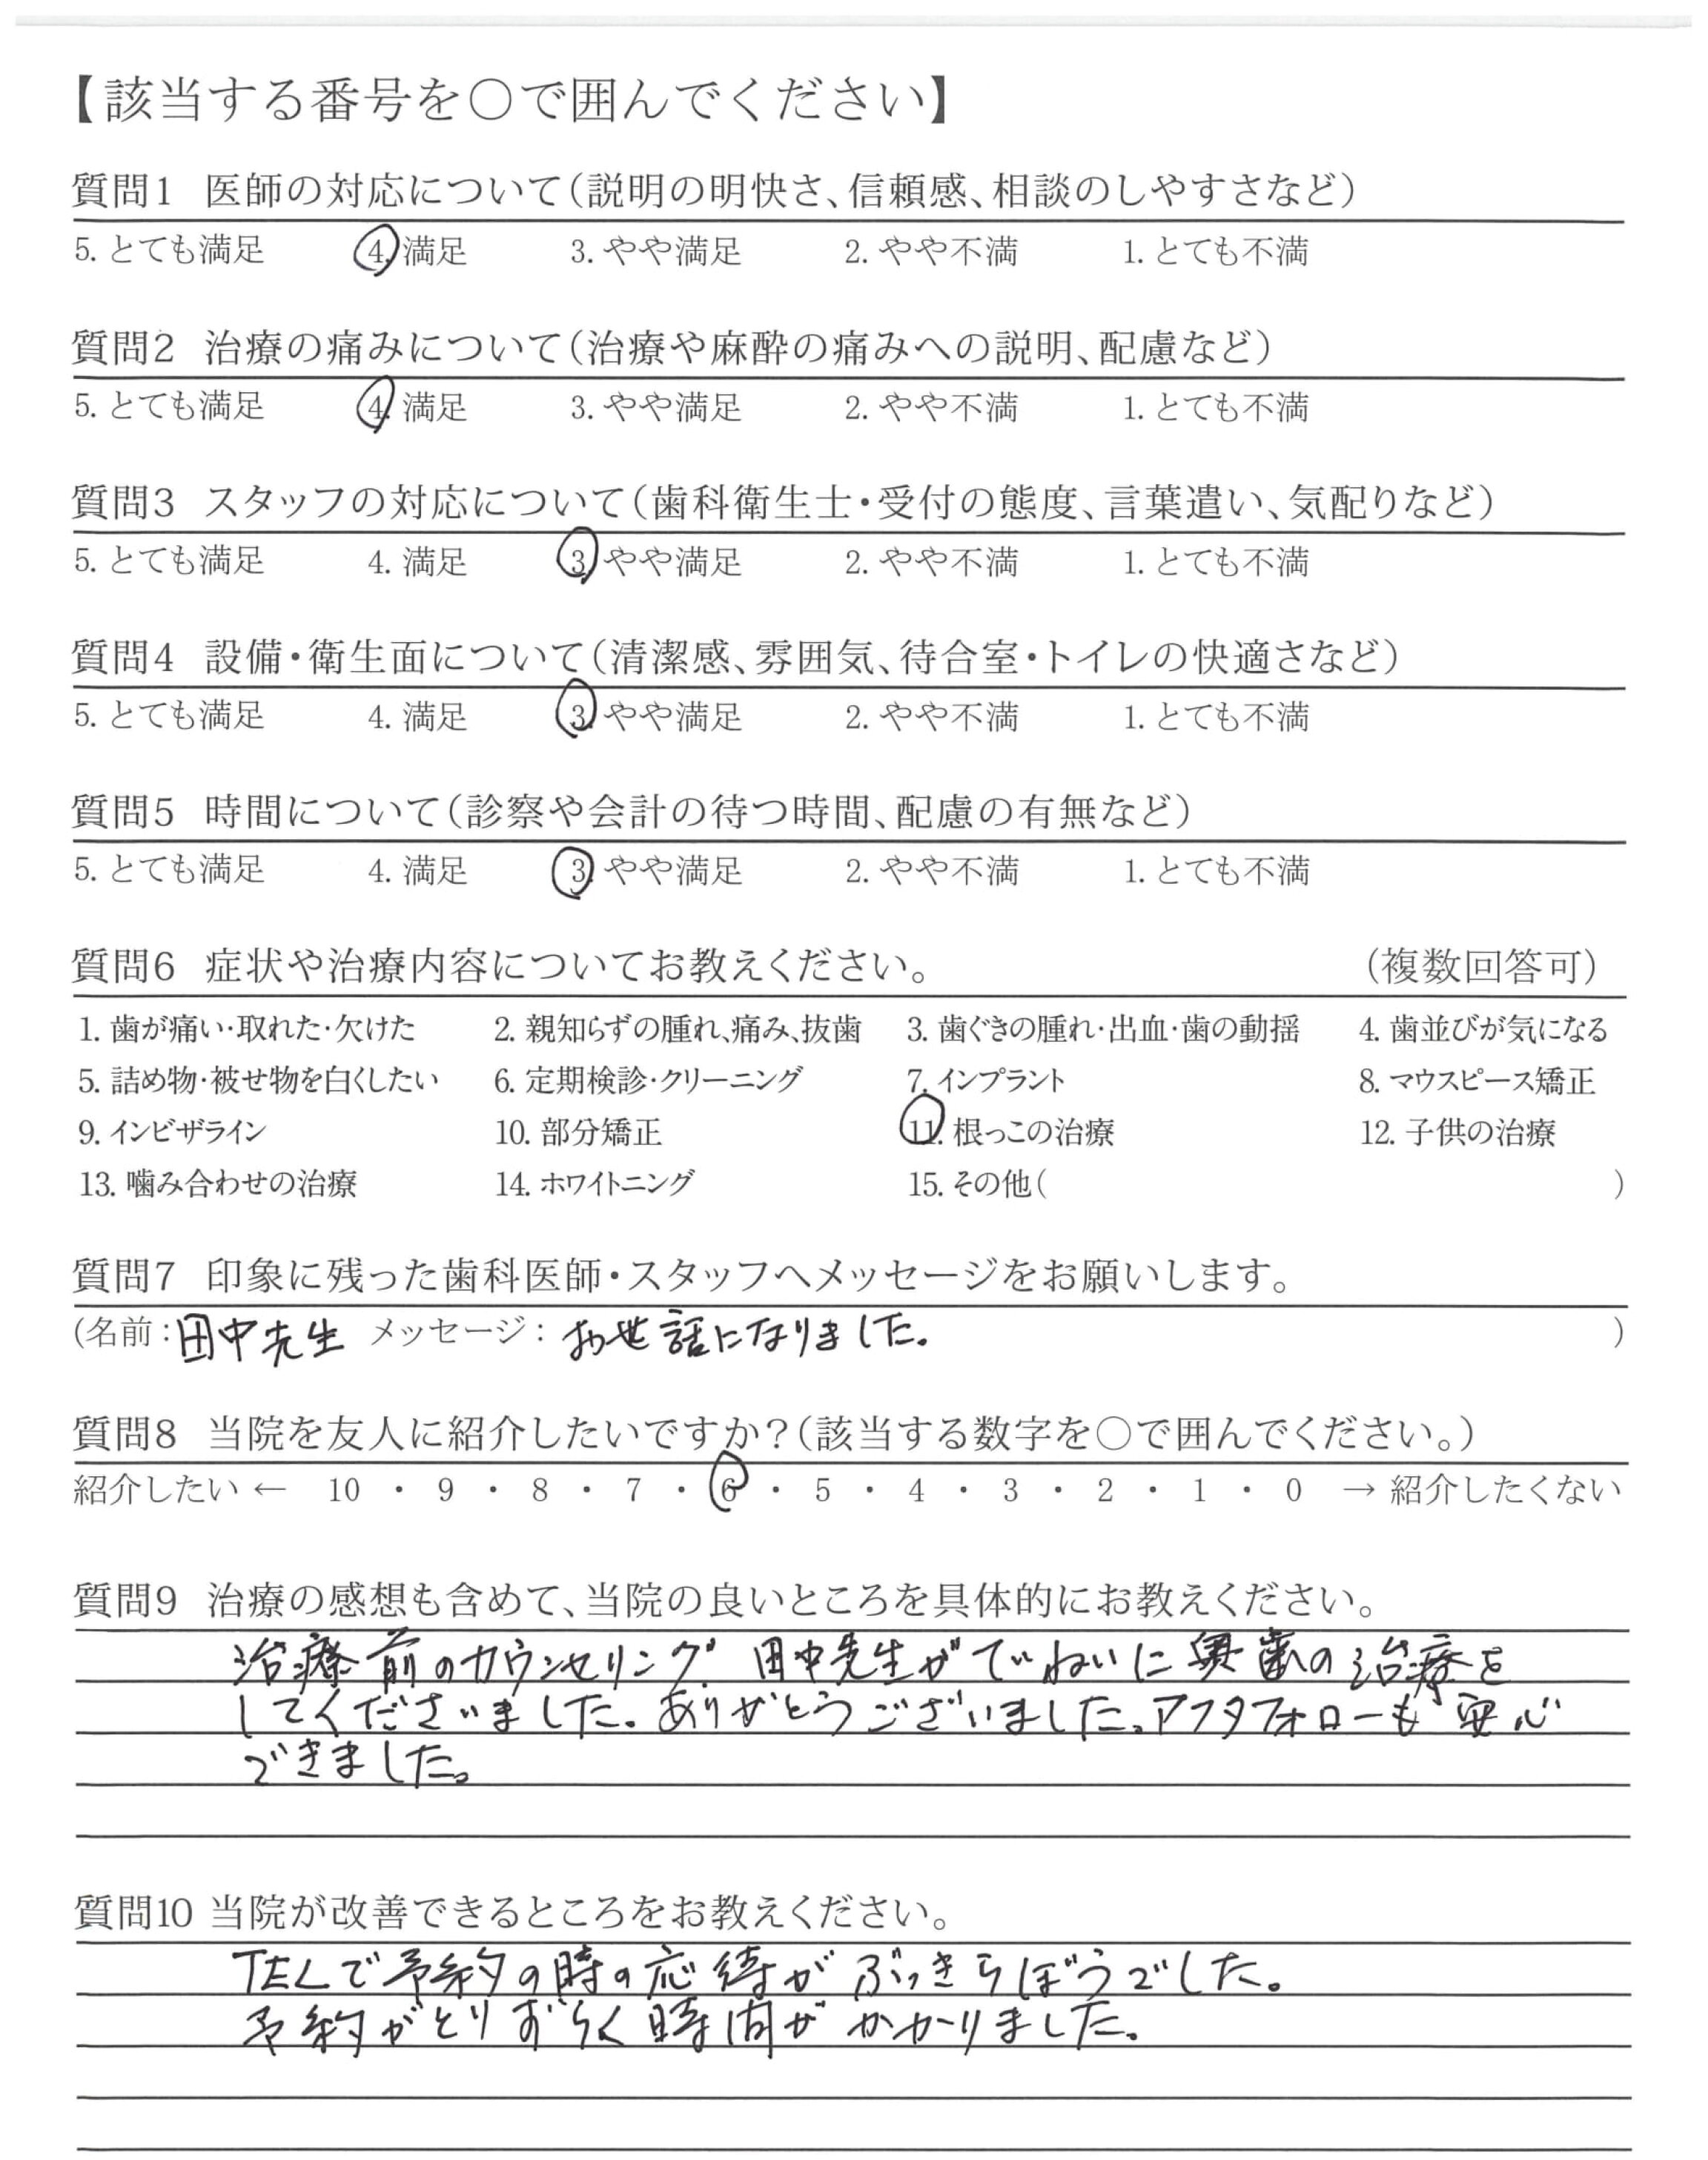 【該当する番号を〇で囲んでください】
質問1 医師の対応について(説明の明快さ、信頼感、相談のしやすさなど)
5. とても満足 4. 満足 3. やや満足 2. やや不満 1. とても不満
質問2 治療の痛みについて(治療や麻酔の痛みへの説明、配慮など)
5. とても満足 4. 満足 3. やや満足 2. やや不満 1. とても不満
質問3 スタッフの対応について(歯科衛生士・受付の態度、言葉遣い、気配りなど)
5. とても満足 4. 満足 3. やや満足 2. やや不満 1. とても不満
質問4 設備・衛生面について(清潔感、雰囲気、待合室・トイレの快適さなど)
5. とても満足 4. 満足 3. やや満足 2. やや不満 1. とても不満
質問5 時間について(診察や会計の待つ時間、配慮の有無など)
5. とても満足 4. 満足 3. やや満足 2. やや不満 1. とても不満
質問6 症状や治療内容についてお教えください。 (複数回答可)
1. 歯が痛い・取れた・欠けた 2. 親知らずの腫れ、痛み、抜歯 3. 歯ぐきの腫れ・出血・歯の動揺 4. 歯並びが気になる
5. 詰め物・被せ物を白くしたい 6. 定期検診・クリーニング 7. インプラント 8. マウスピース矯正
9. インビザライン 10. 部分矯正 11. 根っこの治療 12. 子供の治療
13. 噛み合わせの治療 14. ホワイトニング 15. その他( )
質問7 印象に残った歯科医師・スタッフへメッセージをお願いします。
(名前：田中先生 メッセージ：お世話になりました。 )
質問8 当院を友人に紹介したいですか？(該当する数字を〇で囲んでください。)
紹介したい ← 10 ・ 9 ・ 8 ・ 7 ・ 6 ・ 5 ・ 4 ・ 3 ・ 2 ・ 1 ・ 0 → 紹介したくない
質問9 治療の感想も含めて、当院の良いところを具体的にお教えください。
治療前のカウンセリング、田中先生がていねいに奥歯の治療を
してくださいました。ありがとうございました。アフタフォローも安心
できました。
質問10 当院が改善できるところをお教えください。
TELで予約の時の応待がぶっきらぼうでした。
予約がとりずらく時間がかかりました。